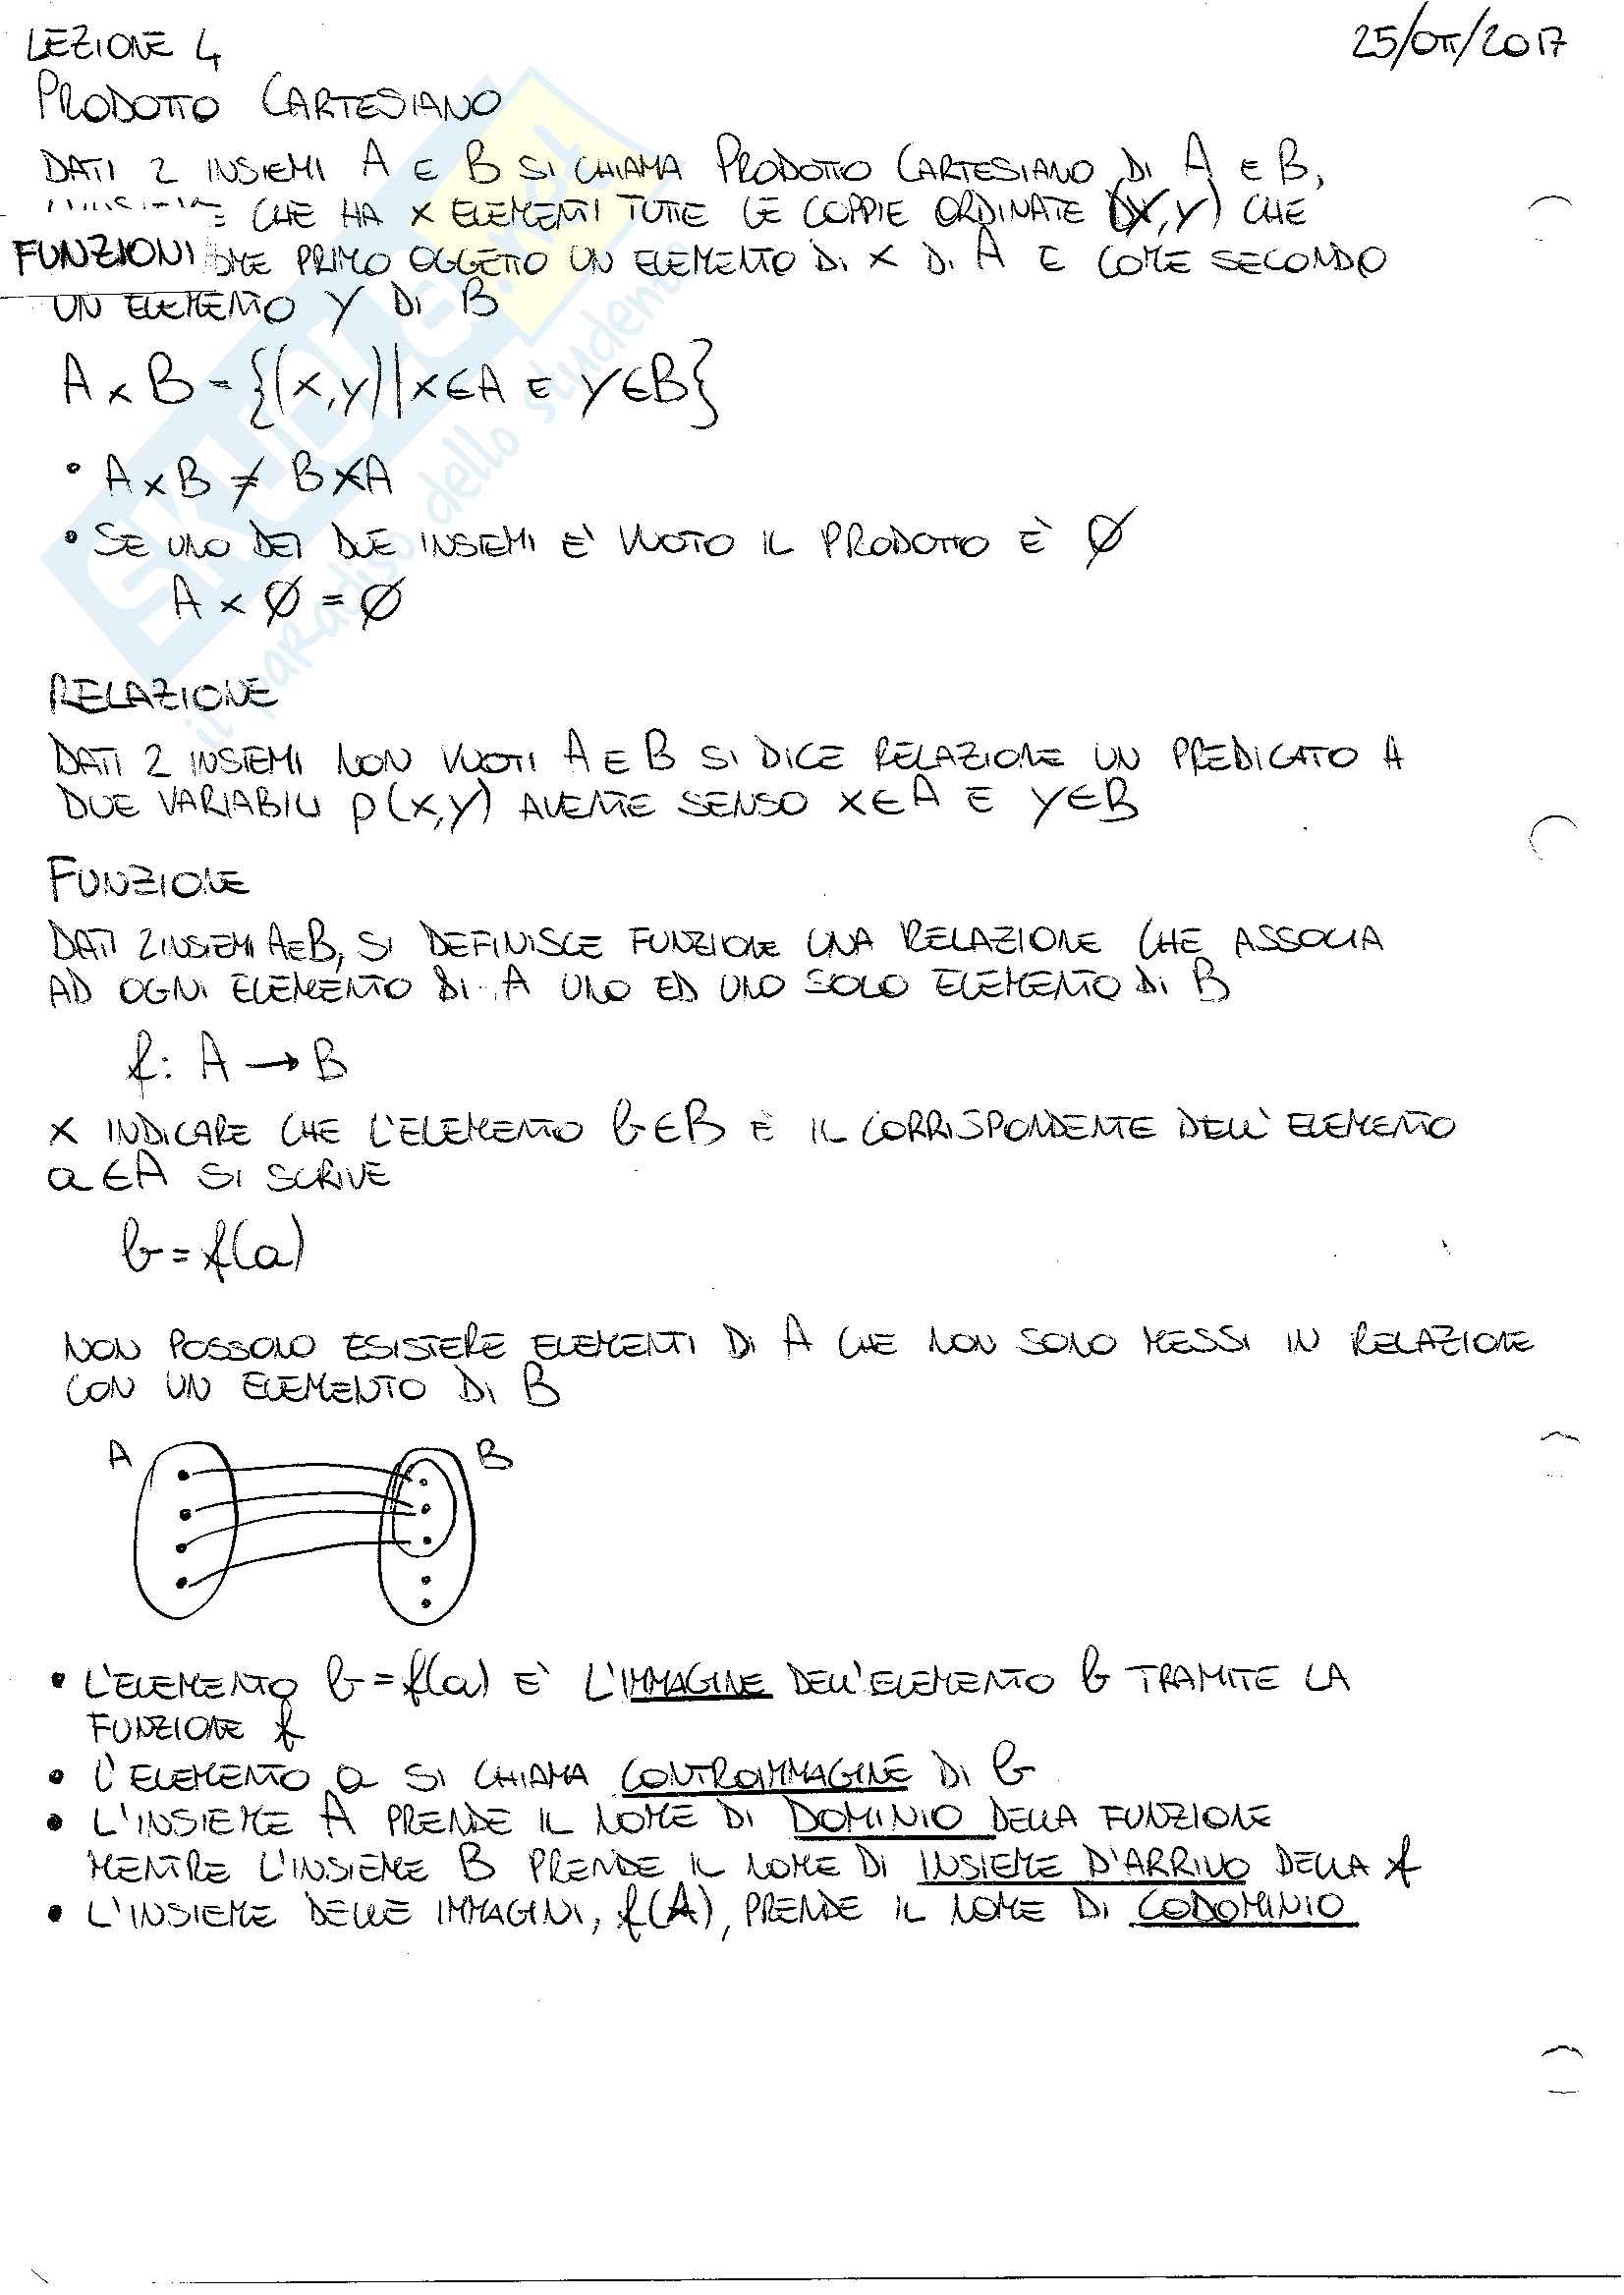 LEZIONE 4
25/OTT/2017
PRODOTTO CARTESIANO
DATI 2 INSIEMI A E B SI CHIAMA PRODOTTO CARTESIANO DI A E B,
CHE HA X ELEMENTI TUTTE LE COPPIE ORDINATE (X,Y) CHE
FUNZIONI
PRIMO OGGETTO UN ELEMENTO DI X DI A E COME SECONDO
UN ELEMENTO Y DI B
A x B = {(x,y)|x∈A E y∈B}
• A x B ≠ B x A
• SE UNO DEI DUE INSIEMI E' VUOTO IL PRODOTTO È Ø
A x Ø = Ø
RELAZIONE
DATI 2 INSIEMI NON VUOTI A E B SI DICE RELAZIONE UN PREDICATO A
DUE VARIABILI p(x,y) AVENTE SENSO x∈A E y∈B
FUNZIONE
DATI 2 INSIEMI A E B, SI DEFINISCE FUNZIONE UNA RELAZIONE CHE ASSOCIA
AD OGNI ELEMENTO DI A UNO ED UNO SOLO ELEMENTO DI B
f: A → B
X INDICARE CHE L'ELEMENTO b∈B È IL CORRISPONDENTE DELL'ELEMENTO
a∈A SI SCRIVE
b = f(a)
NON POSSONO ESISTERE ELEMENTI DI A CHE NON SONO MESSI IN RELAZIONE
CON UN ELEMENTO DI B
A B
• L'ELEMENTO b = f(a) E' L'IMMAGINE DELL'ELEMENTO b TRAMITE LA
FUNZIONE f
• L'ELEMENTO a SI CHIAMA CONTROIMMAGINE DI b
• L'INSIEME A PRENDE IL NOME DI DOMINIO DELLA FUNZIONE
MENTRE L'INSIEME B PRENDE IL NOME DI INSIEME D'ARRIVO DELLA f
• L'INSIEME DELLE IMMAGINI, f(A), PRENDE IL NOME DI CODOMINIO
SKUOLA.net
il paradiso dello studente